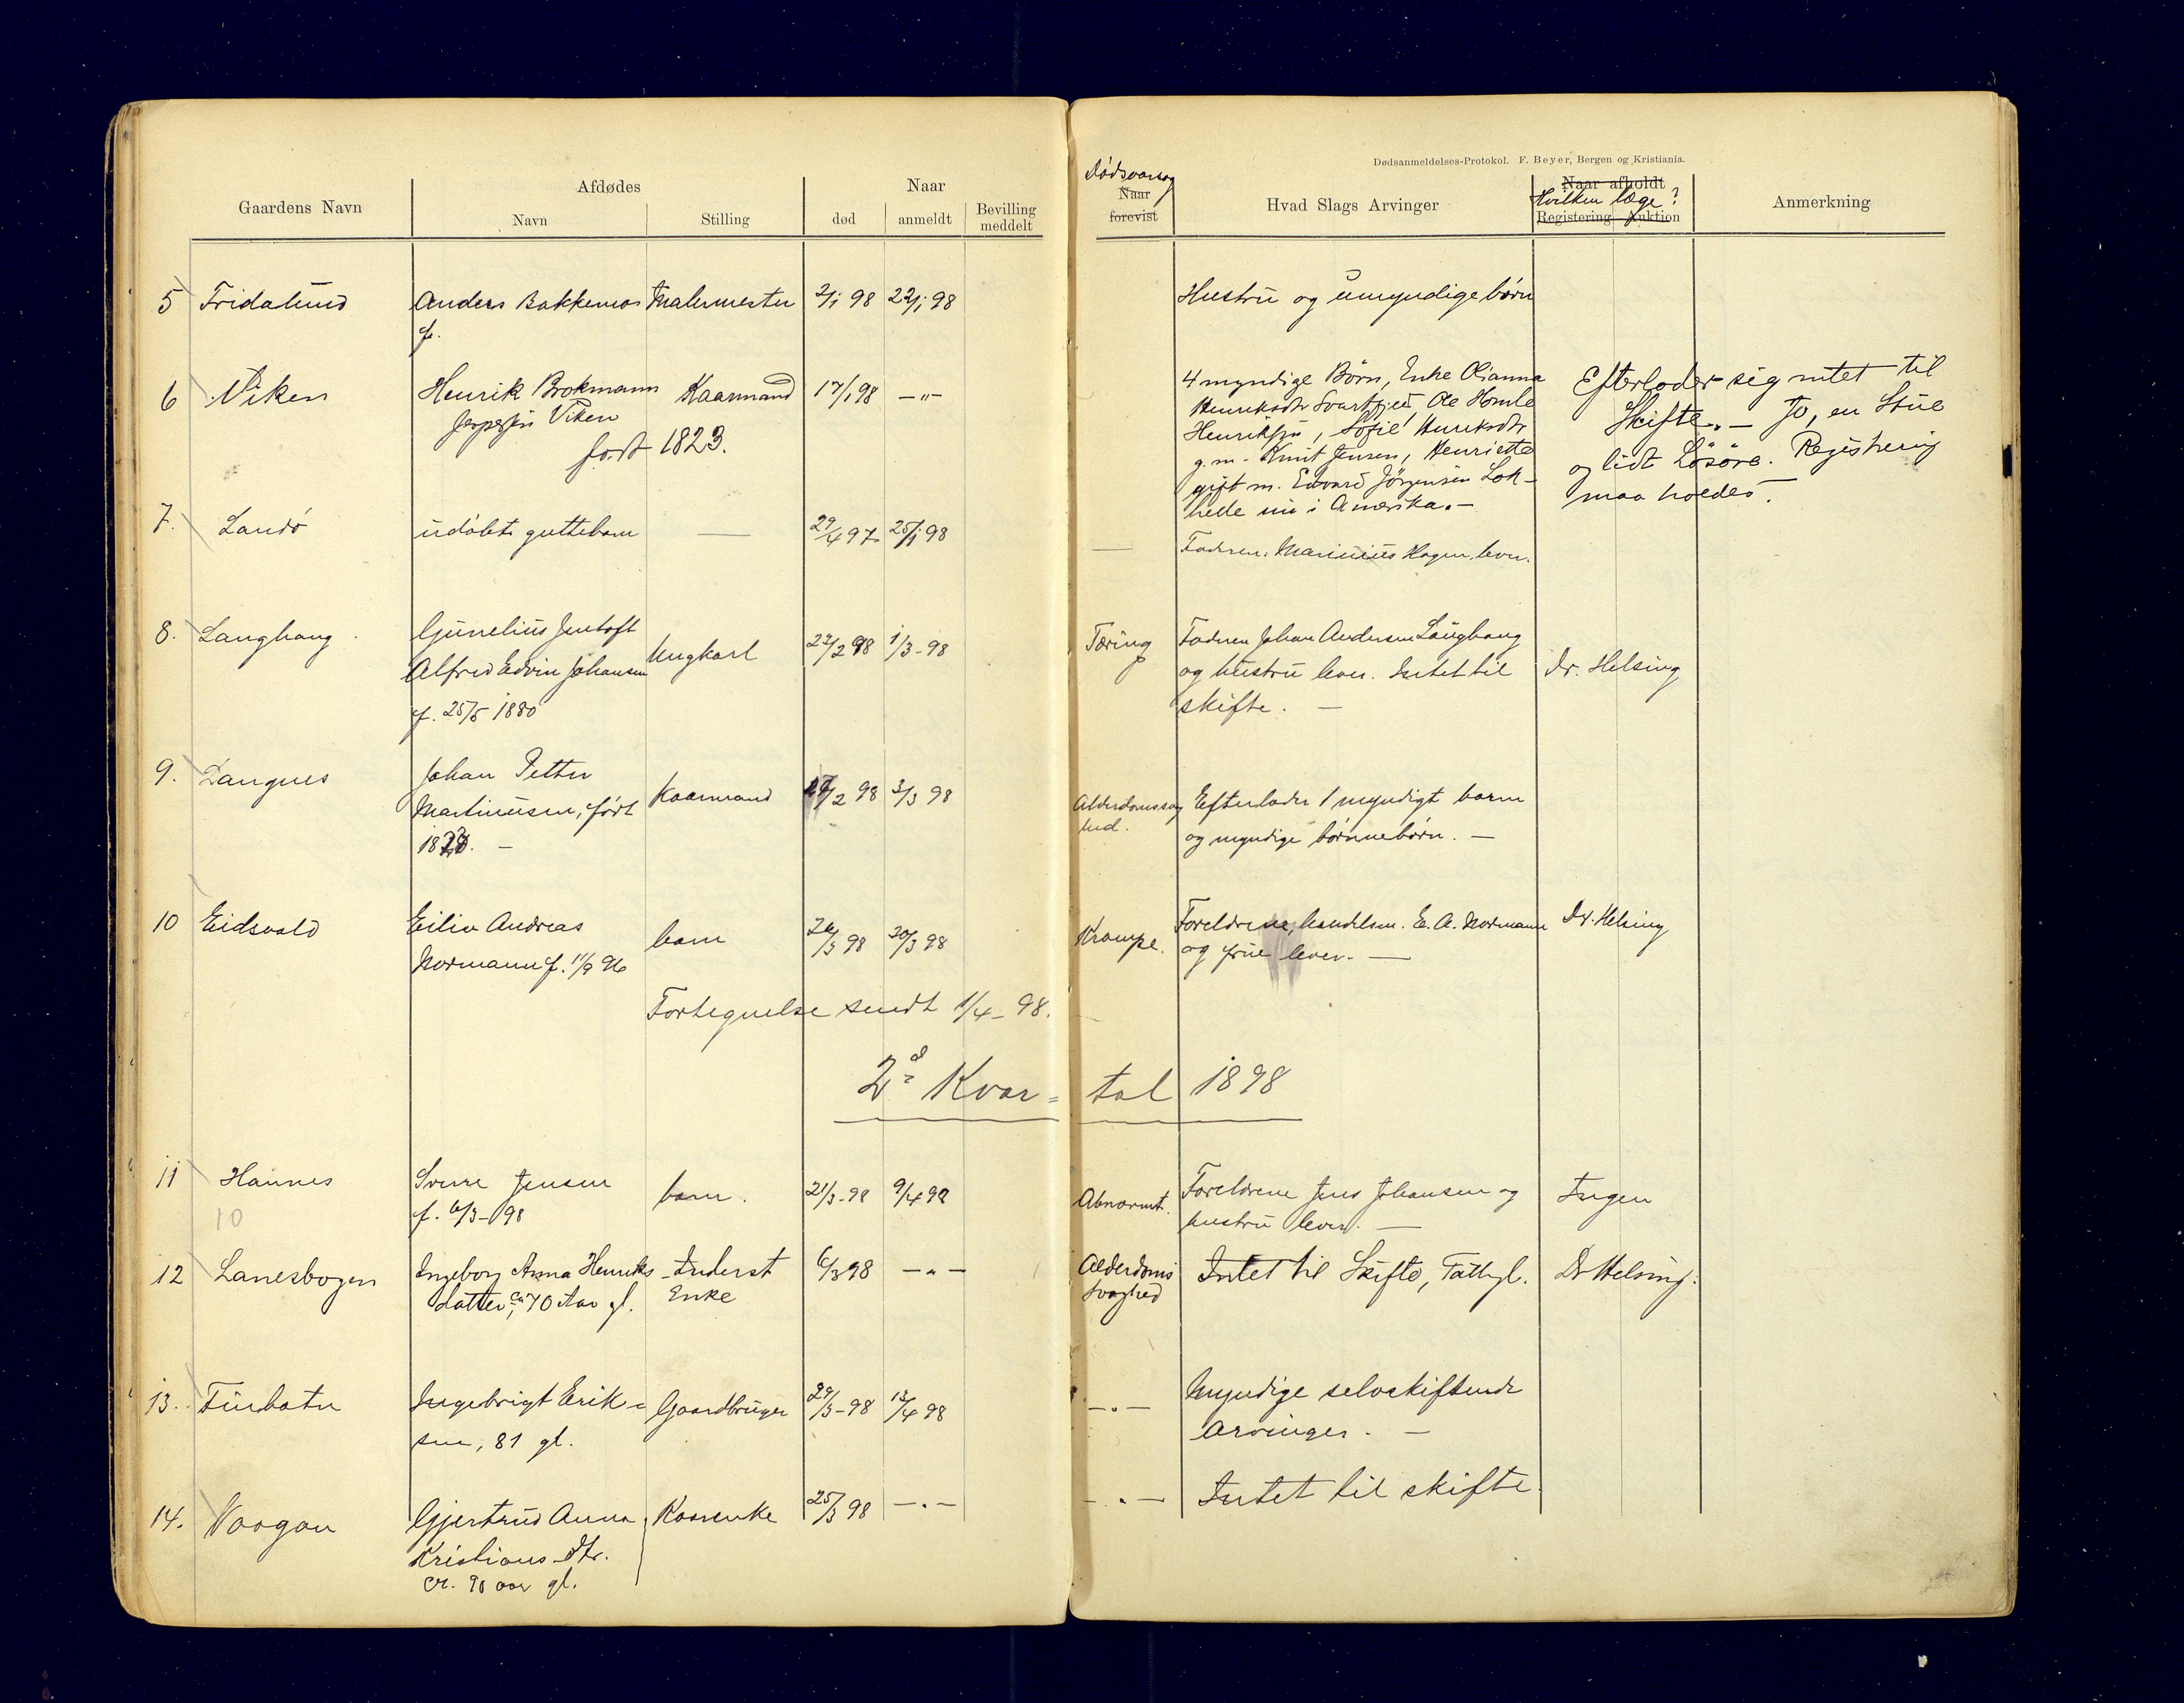 Dødsanmeldelses-Protokol. F. Beyer, Bergen og Kristiania.
Gaardens Navn
Afdødes
Navn
Stilling
Naar
død
anmeldt
Bevilling
meddelt
Dødsaarsag
Naar
forevist
Hvad Slags Arvinger
Naar afholdt
Hvilken læge?
Registering Auktion
Anmerkning
5 Fridalund Anders Bakkemo Malermester 2/1 98 22/1 98 Hustru og umyndige børn
f.
6 Viken Henrik Brokmann Kaarmand 17/1 98 —"— 4 myndige Børn, Enke Olianna Efterlader sig intet til
Jespersen Viken Henriksdtr Svartfjell, Ole Homle Skifte. — Jo, en Stue
født 1823. Henriksen, Sofie Henriksdtr og lidt Løsøre. Registrering
g. m. Knut Jensen, Henriette maa holdes.
gift m. Edvard Jörgensen
nu i Amerika. —
7. Sandø udøbt guttebarn — 29/4 97 25/1 98 — Faderen: Marinius Hagen, lever.
8. Langhaug Gunelius Jentoft Ungkarl 22/2 98 1/3 - 98 Tæring Faderen Johan Andersen Langhaug
Alfred Edvin Johansen og hustru lever. Intet til Dr. Helsing
f. 25/5 1880 skifte. —
9. Langnes Johan Petter Kaarmand 27/2 98 3/3 98 Alderdomssvag Efterlader 1 myndigt barn
Martinusen, født hed. og myndige børnnebørn. —
10 Eidsvold Eiliv Andreas barn 98 20/3 98 Krampe. Foreldrene, handelsm. E. A. Normann Dr. Helsing
Normann f. 11/9 96 og frue lever. —
Fortegnelse sendt 1/4 - 98.
2d Kvar= tal 1898
11 Haunes Sverre Jensen barn. 21/3 - 98 9/4 98 Abnormt. Foreldrene Jens Johansen og Ingen
10 f. 6/3 - 98 hustru lever. —
12 Lanesbogen Ingeborg Anna Henriks Inderst 6/3 98 —"— Alderdoms Intet til Skifte, Dr Helsing.
datter, ca 70 Aar gl. Enke svaghed
13. Finbotn Ingebrigt Erik= Gaardbruger 29/3 - 98 13/4 98 —"— Myndige selvskiftende
sen, 81 gl. Arvinger. —
14. Vaagan Gjertrud Anna Kaarenke 25/3 98 —"— —"— Intet til skifte.
Kristians dtr.
ca. 90 aar gl.